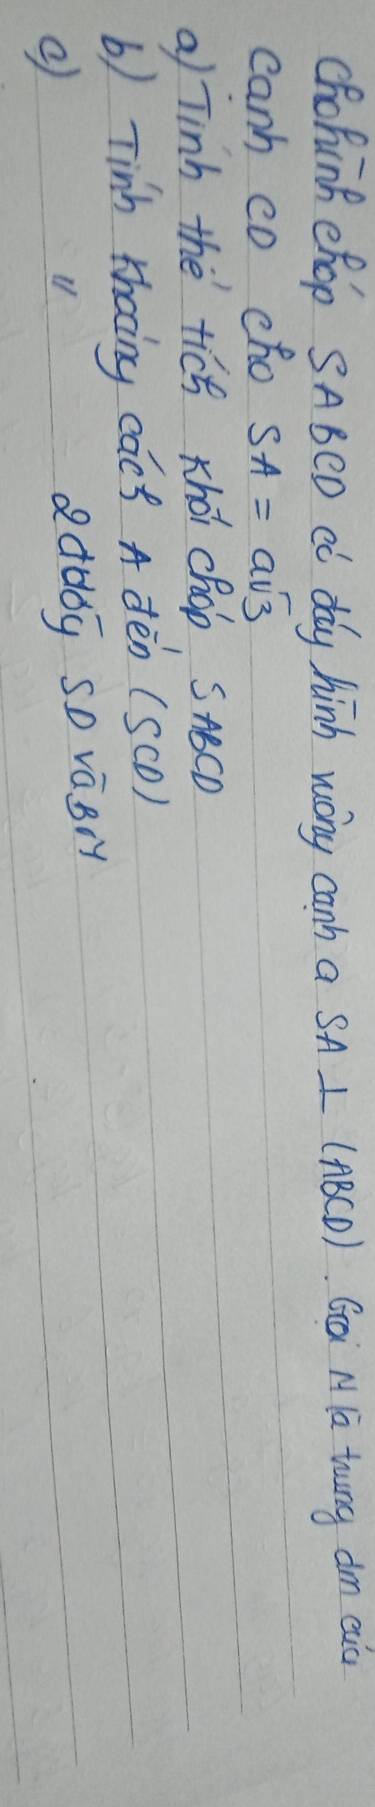 Cho hình chóp SABCD có đáy hình vuông cạnh a SA ⊥ (ABCD). Gọi M là trung đm của
cạnh CD cho SA = a√3
a) Tính thể tích khối chóp SABCD
b) Tính khoảng cách A đến (SCD)
c) " 2 đường SD và BM